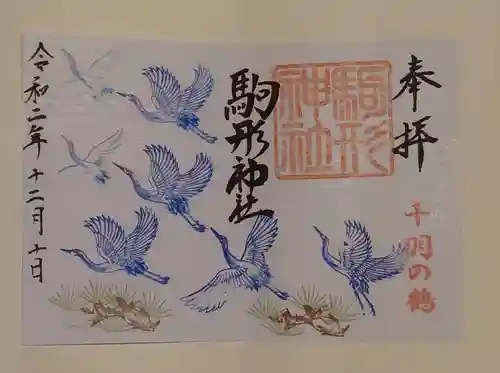 奉拝
千羽の鶴
駒形神社
駒形神社
令和二年十二月十日